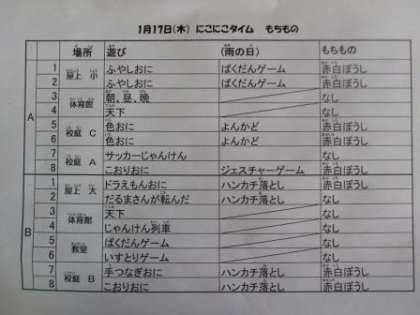 1月17日(木) にこにこタイム もちもの
場所 遊び (雨の日) もちもの
A
1 屋上 小 ふやしおに ばくだんゲーム 赤白ぼうし
2 ふやしおに ばくだんゲーム 赤白ぼうし
3 体育館 朝、昼、晩 なし
4 天下 なし
5 校庭 C 色おに よんかど 赤白ぼうし
6 色おに よんかど 赤白ぼうし
7 校庭 A サッカーじゃんけん なし
8 こおりおに ジェスチャーゲーム 赤白ぼうし
B
1 屋上 太 ドラえもんおに ハンカチ落とし 赤白ぼうし
2 だるまさんが転んだ ハンカチ落とし なし
3 体育館 天下 なし
4 じゃんけん列車 なし
5 教室 ばくだんゲーム なし
6 いすとりゲーム なし
7 校庭 B 手つなぎおに ハンカチ落とし 赤白ぼうし
8 こおりおに ハンカチ落とし 赤白ぼうし